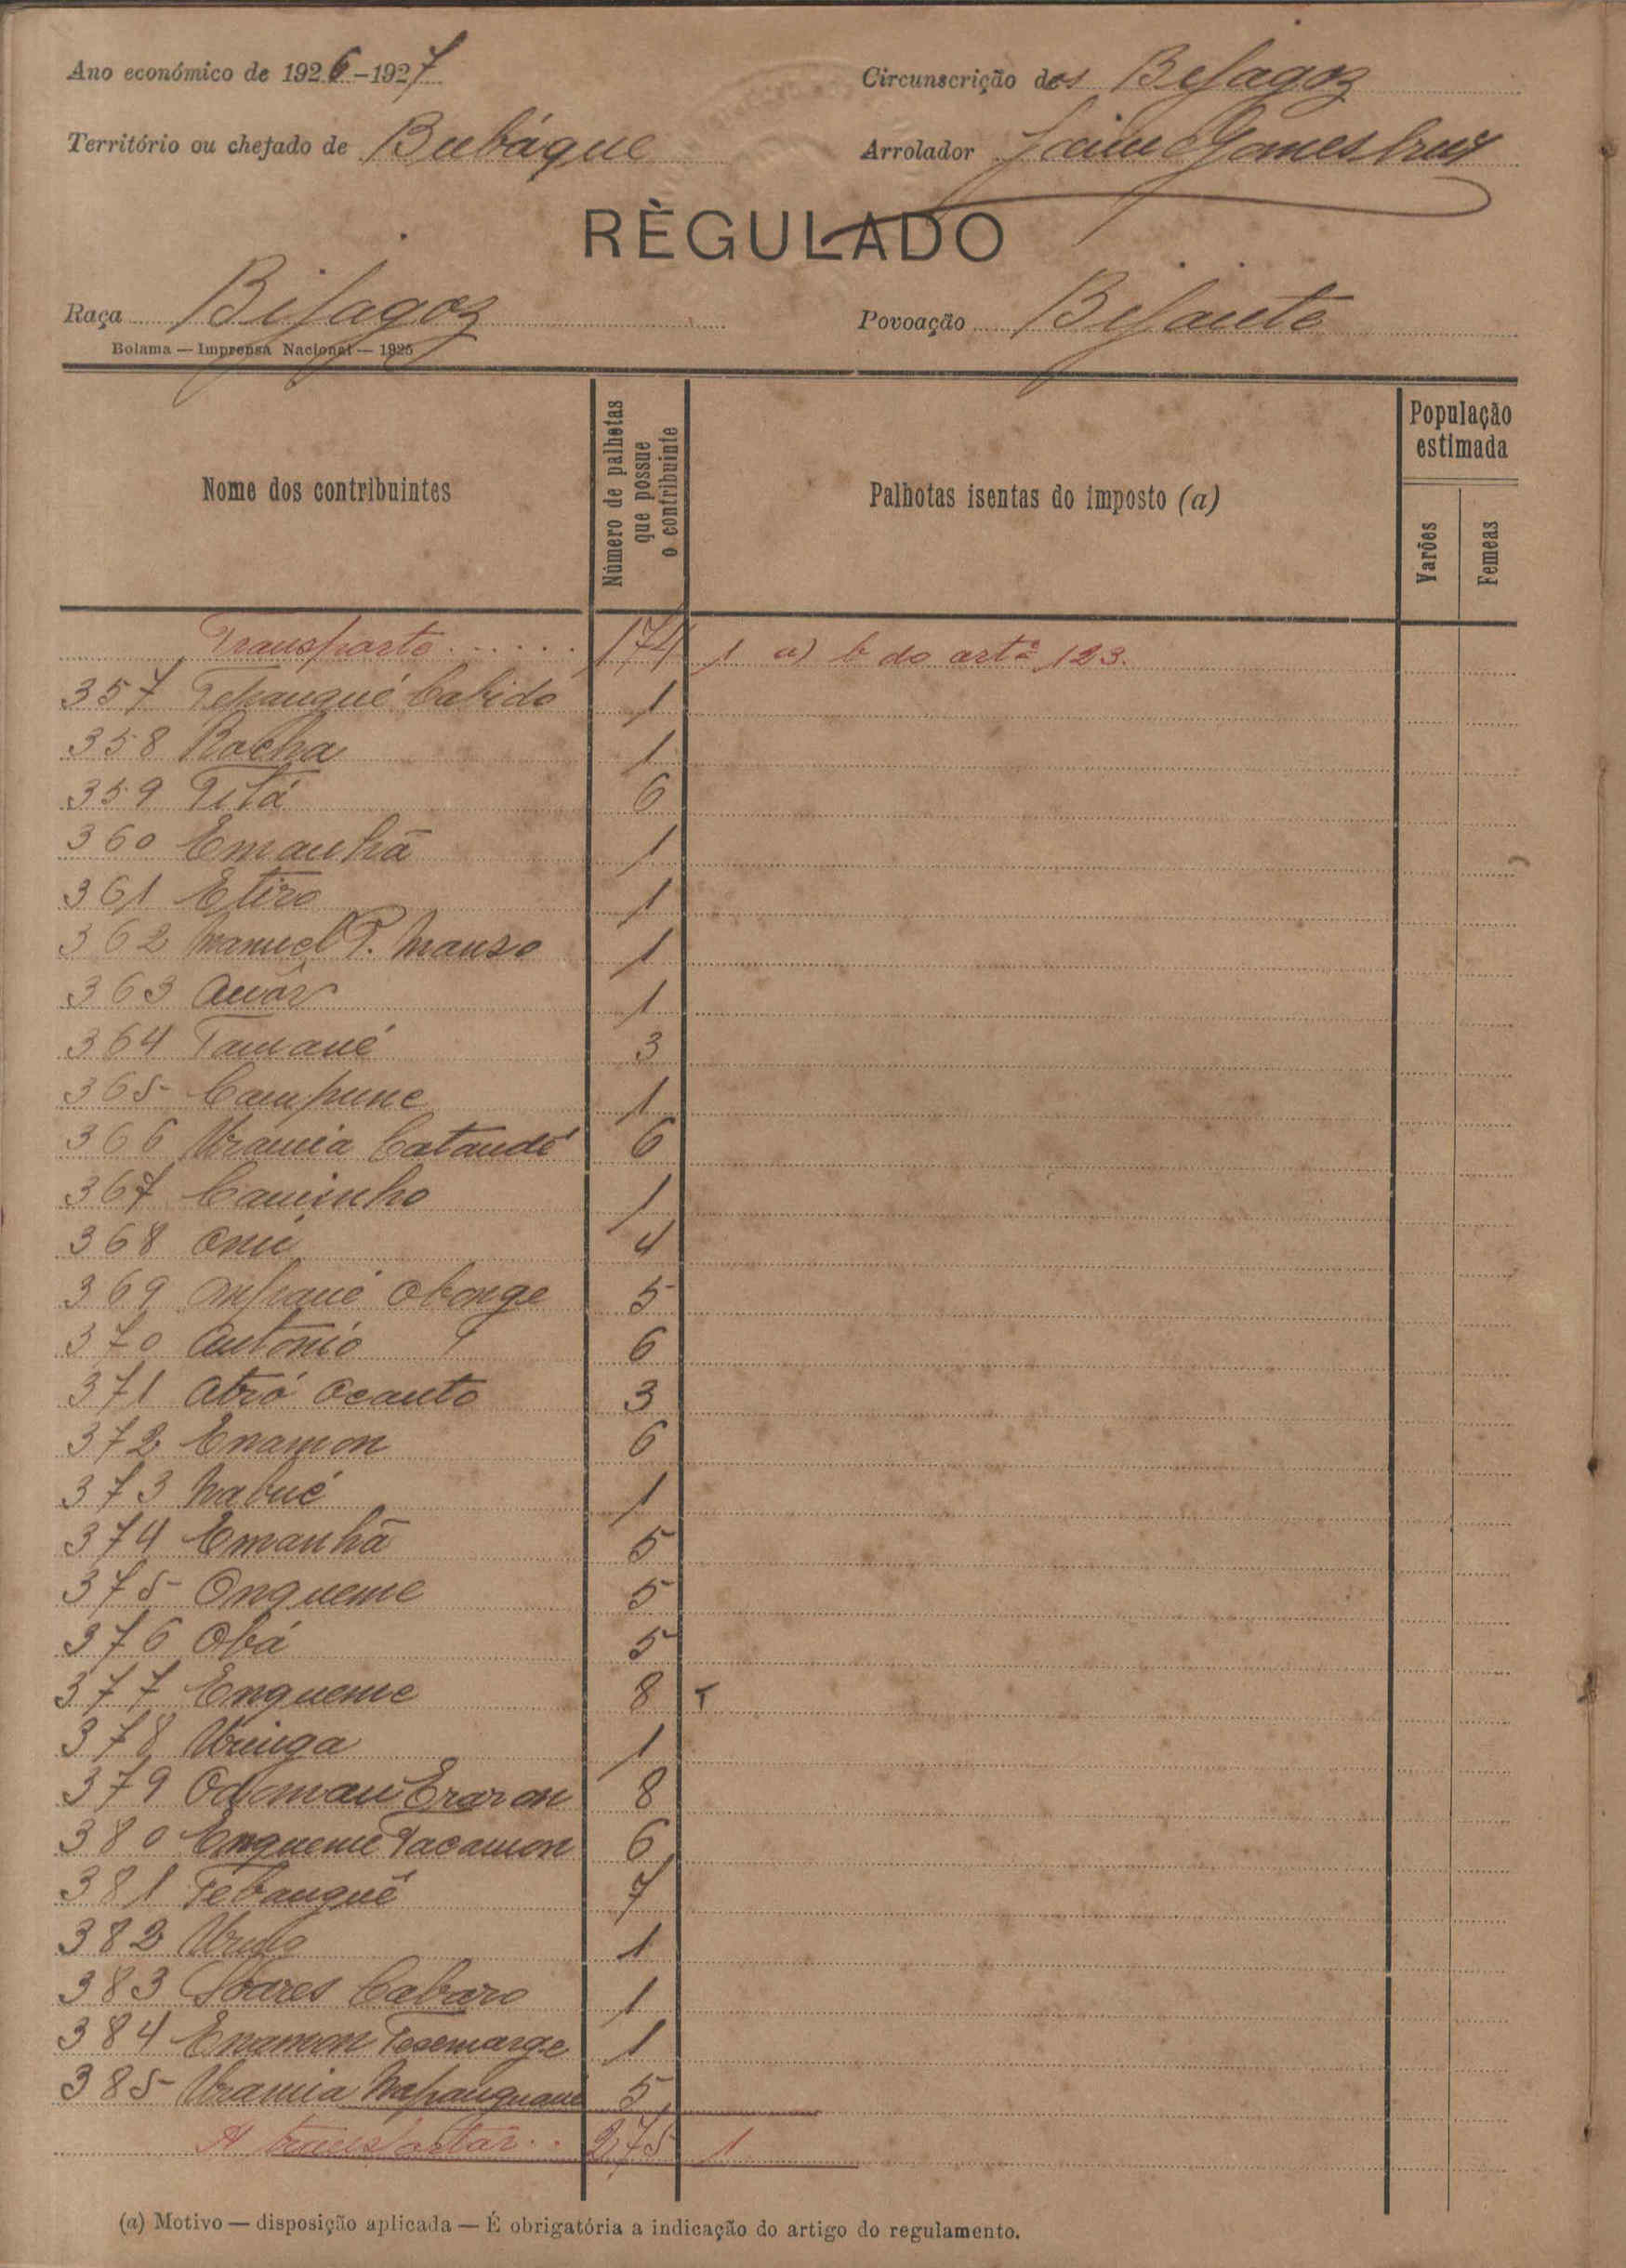 Ano económico de 1926-1927
Circunscrição dos Bijagoz
Território ou chefado de Bubáque
Arrolador Jaime Gomes Cruz
RÈGULADO
Raça Bijagoz
Povoação Bijante
Bolama — Imprensa Nacional — 1925
Nome dos contribuintes
Número de palhotas que possue o contribuinte
Palhotas isentas do imposto (a)
População estimada
Varões
Femeas
Transporte...... 174 1 a) b do artº 123.
357 Tepangué Cabido 1
358 Rocha 1
359 Titá 6
360 Emanhã 1
361 Etiro 1
362 Manuel P. Manso 1
363 1
364 Tamané 3
365 Campune 1
366 Urania Catandé 6
367 Caminho 1
368 5 4
369 Obonge 5
370 Antonio 6
371 Atró Ocanto 3
372 Enamon 6
373 Nabué 1
374 Emanhã 5
375 Onqueme 5
376 Obá 5
377 Enqueme 8
378 1
379 8
380 Enqueme Tacamon 6
381 Tebanguê 7
382 1
383 Soares Cabaro 1
384 Enamon 1
385 Urania 5
A transportar.. 275 1
(a) Motivo — disposição aplicada — É obrigatória a indicação do artigo do regulamento.